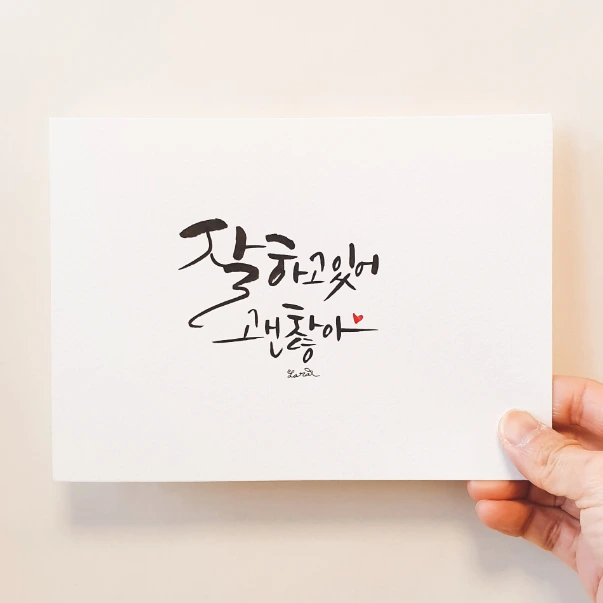 잘하고있어
괜찮아